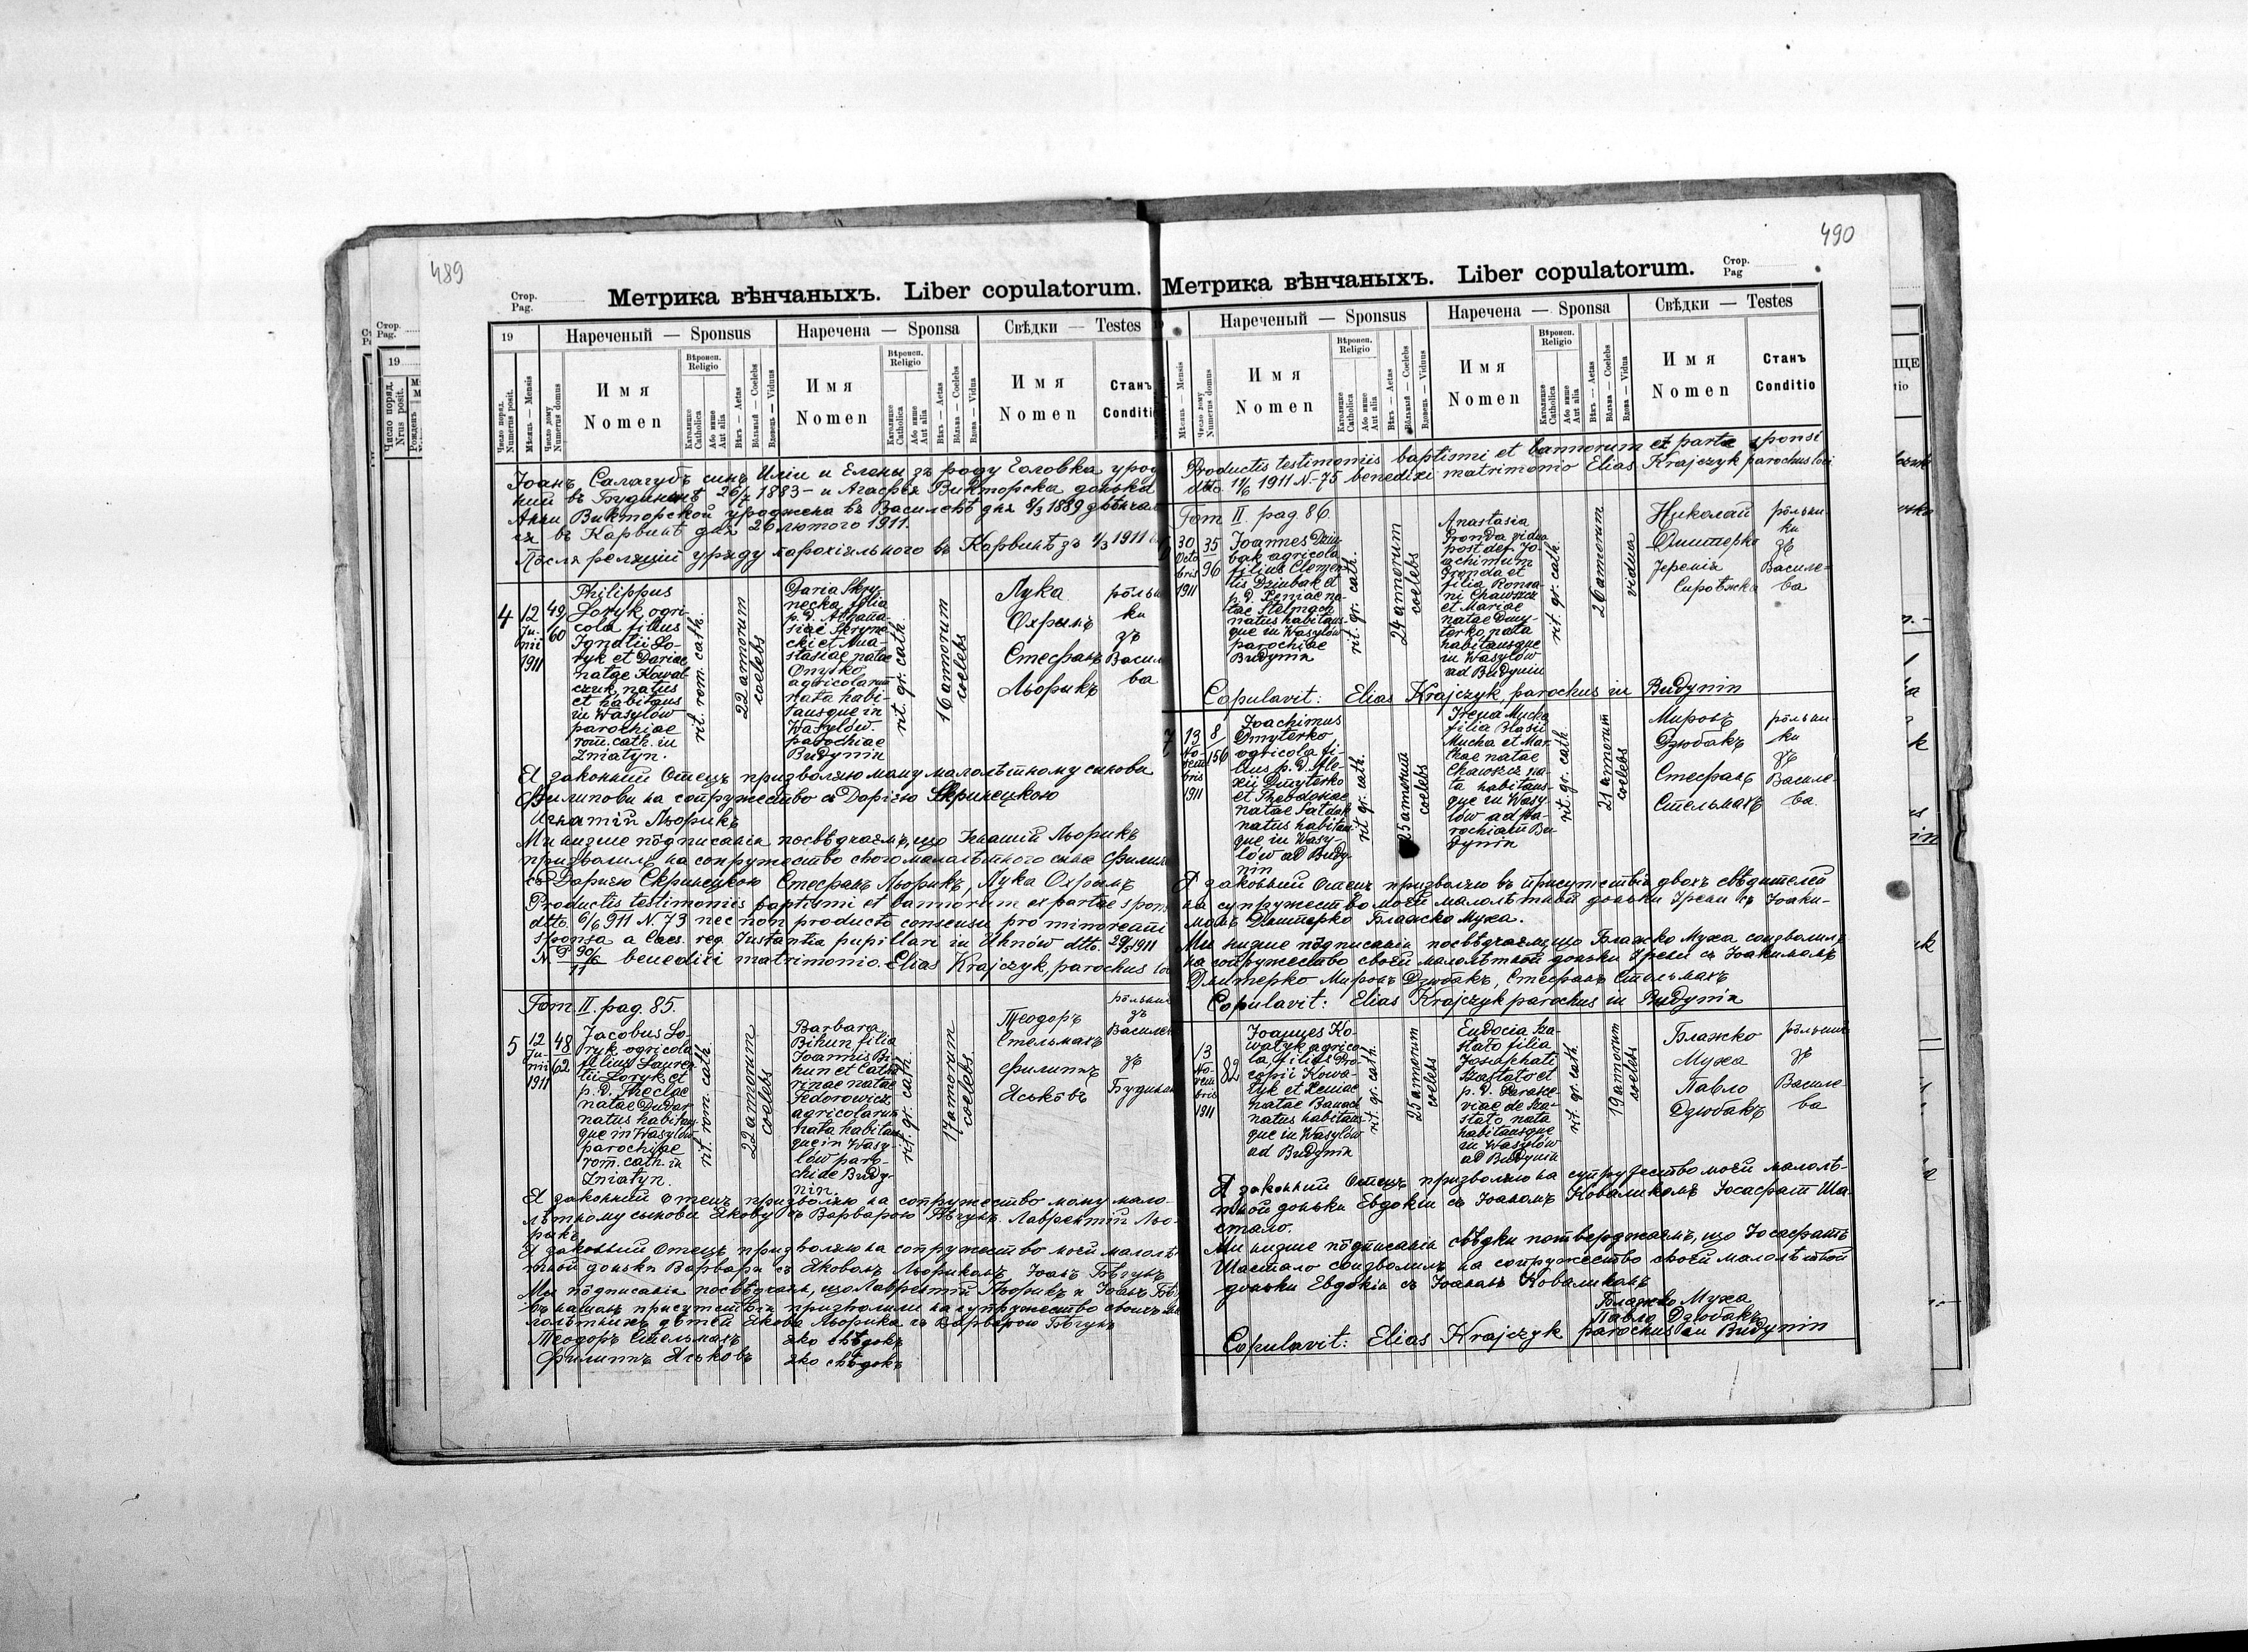 489
Стор.
Pag.
Метрика вѣнчаныхъ. Liber copulatorum.
19
Нареченый — Sponsus
Наречена — Sponsa
Свѣдки — Testes
Число поряд.
Numerus posit.
Мѣсяць — Mensis
Число дому
Numerus domus
Имя
Nomen
Вѣроисп.
Religio
Католицке
Catholica
Або инше
Aut alia
Вѣкъ — Aetas
Вôльный — Coelebs
Вдовець — Viduus
Имя
Nomen
Вѣроисп.
Religio
Католицке
Catholica
Або инше
Aut alia
Вѣкъ — Aetas
Вôльна — Coelebs
Вдова — Vidua
Имя
Nomen
Станъ
Conditi
Іоанъ Салагубъ синъ Иліи и Елены зъ роду Головка урод
ний въ Будининѣ 26/7 1883 – и Агафія Викторска донька
Анни Викторской уроджена въ Василевѣ дня 8/3 1889
ся въ Карвинѣ дня 26 лютого 1911.
Пôсля реляціи уряду парохіяльного въ Карвинѣ зъ 1/3 1911
4
12
Ju-
nii
1911
49/
60
Philippus
Loryk agri-
cola filius
Ignatii Lo-
ryk et Dariae
natae Kowal-
czuk, natus
et habitans
in Wasylów
parochiae
rom. cath. in
Żniatyn.
rit. rom. cath.
22 annorum
coelebs
Daria Skry-
necka, filia
p. d. Athana-
siae Skryne-
cki et Ana-
stasiae natae
Onyśko
agricolarum
nata habi-
tansque in
Wasylów.
parochiae
Budynin
rit. gr. cath.
16 annorum
coelebs
Лука
Охримъ
Стефанъ
Льорикъ
рôльни
ки
зъ
Васил
ва
Я законний Отець призволяю мому малолѣтному синови
Филипови на сопружество съ Дарією Скринецкою
Игнатій Льорикъ
Ми низше пôдписанiи посвѣдчаемъ, що Игнатій Льорикъ
призволилъ на сопружество свого малолѣтного сина Филип
съ Дарією Скринецкою Стефанъ Льорикъ, Лука Охримъ
Productis testimoniis baptismi et bannorum ex partae spons
dtto. 6/6 911 N. 73 nec non producto consensu pro minoreani
sponsa a Caes. reg. Instantia pupillari in Uhnów dtto. 29/5 1911
N. P 90/6 11 benedixi matrimonio. Elias Krajczyk, parochus loc
Tom II. pag. 85.
5
12
Ju-
nii
1911
48
62
Jacobus Lo-
ryk agricola
filius Lauren-
tii Loryk et
p. d. Theclae
natae Dudar
natus habitans-
que in Wasylów
parochiae
rom. cath. in
Żniatyn.
rit. rom. cath.
22 annorum
coelebs
Barbara
Bihun filia
Joannis Bi-
hun et Catha-
rinae natae
Fedorowicz
agricolarum
nata habitans-
que in Wasy-
lów paro-
chiae Budy-
nin.
rit. gr. cath.
17 annorum
coelebs
Теодоръ
Стельмахъ
Филиппъ
Яськôвъ
рôльник
зъ
Василев
зъ
Будинин
Я законний отець призволяю на сопружество мому мало-
лѣтному сынови Якову съ Варварою Бѣгунъ. Лаврентій Льо-
рикъ
Я законний Отець призволяю на сопружество моєй малолѣ-
тной доньки Варвари съ Яковомъ Льорикомъ Іоанъ Бѣгунъ
Ми пôдписанiи посвѣдчаєм, що Лаврентій Льорикъ и Іоанъ Бѣг
въ нашôмъ присутствіи призволили на супружество своихъ ма
лолѣтнихъ дѣтей Якова Льорика съ Варварою Бѣгунъ
Теодоръ Стельмахъ яко свѣдокъ
Филиппъ Яськовъ яко свѣдокъ
490
Стор.
Pag
Метрика вѣнчаныхъ. Liber copulatorum.
Нареченый — Sponsus
Наречена — Sponsa
Свѣдки — Testes
Мѣсяць — Mensis
Число дому
Numerus domus
Имя
Nomen
Вѣроисп.
Religio
Католицке
Catholica
Або инше
Aut alia
Вѣкъ — Aetas
Вôльный — Coelebs
Вдовець — Viduus
Имя
Nomen
Вѣроисп.
Religio
Католицке
Catholica
Або инше
Aut alia
Вѣкъ — Aetas
Вôльна — Coelebs
Вдова — Vidua
Имя
Nomen
Станъ
Conditio
Productis testimoniis baptismi et bannorum ex parte sponsi
dtto. 11/6 1911 N-75 benedixi matrimonio Elias Krajczyk parochus loci
Tom II. pag. 86
30
Octo
bris
1911
35
96
Joannes Dziu-
bak agricola
filius Clemen-
tis Dziubak et
p. d. Xeniae na-
tae Stelmach
natus habitans-
que in Wasylów
parochiae
Budynin
rit. gr. cath.
24 annorum
coelebs
Anastasia
Gronda vidua
post def. Jo-
achimum
Gronda et
filia Roma-
ni Chawszcz
et Mariae
natae Dmy-
terko, nata
habitansque
in Wasylów
ad Budynin
rit. gr. cath.
26 annorum
vidua
Николай
Дмитерко
Јеремія
Сирѣжка
рôльни-
ки
зъ
Василе-
ва
Copulavit: Elias Krajczyk, parochus in Budynin
7
13
No-
vem
bris
1911
8/
156
Joachimus
Dmyterko
agricola fi-
lius p. d. Ale-
xii Dmyterko
et Theodosiae
natae Sałdak
natus habitans-
que in Wasy-
lów ad Budy-
nin
rit. gr. cath.
25 annorum
coelebs
Irena Mucha
filia Blasii
Mucha et Mar-
thae natae
Chawszcz na-
ta habitans-
que in Wasy-
lów ad pa-
rochiam Bu-
dynin
rit. gr. cath
21 annorum
coelebs
Миронъ
Дзюбакъ
Стефанъ
Стельмахъ
рôльни-
ки
зъ
Василе-
ва.
Я законний Отець призволяю въ присутствіи двохъ свѣдителей
на супружество моєй малолѣтной доньки Ірени съ Іоаки-
момъ Дмитерко Блажко Муха.
Ми низше пôдписанiи посвѣдчаемъ що Блажко Муха соизволилъ
на сопружество своєй малолѣтной доньки Ірени съ Іоакимомъ
Дмитерко Миронъ Дзюбакъ, Стефанъ Стельмахъ
Copulavit: Elias Krajczyk parochus in Budynin
13
No-
vem
bris
1911
82
Joannes Ko-
watyk agrico-
la, filius Pro-
copii Kowa-
tyk et Xeniae
natae Banach
natus habitans-
que in Wasylów
ad Budynin
rit. gr. cath.
25 annorum
coelebs
Eudocia Sza-
stało filia
Josaphati
Szastało et
p. d. Paraske-
viae de Sza-
stało, nata
habitansque
in Wasylów
ad Budynin
rit. gr. cath
19 annorum
coelebs
Блажко
Муха
Павло
Дзюбакъ
рôльники
зъ
Василе-
ва
Я законний Отець призволяю на супружество моєй малолѣ-
тной доньки Евдокіи съ Іоаномъ Коваликомъ Іосафат Ша-
стало.
Ми низше пôдписанiи свѣдки потверджаємъ, що Іосафатъ
Шастало соизволилъ на сопружество своєй малолѣтной
доньки Евдокіи съ Іоаномъ Коваликомъ
Блажко Муха
Павло Дзюбакъ
Copulavit: Elias Krajczyk parochus in Budynin